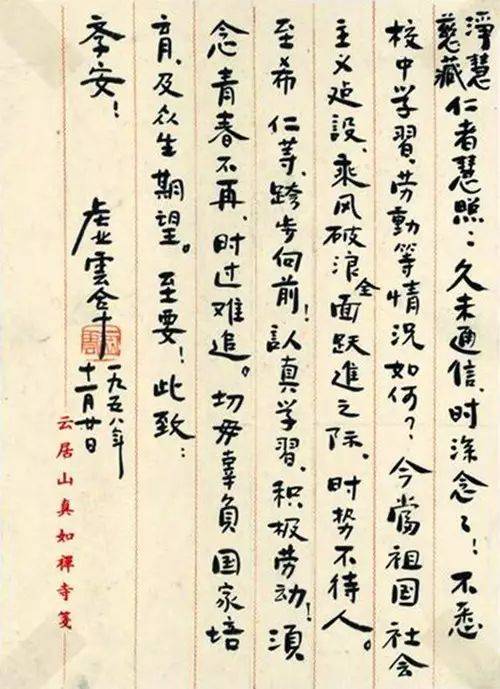 淨慧
慈藏仁者慧照：久未通信，时深念々！不悉
校中学習、劳動等情况如何？今當祖国社会
主义建設，乘风破浪，全面跃進之际，时势不待人。
至希 仁等，跨步向前！認真学習，积极劳动！須
念青春不再，时过难追。切毋辜負 国家培
育，及众生期望。至要！此致：
季安！
虛雲合十
一九五八年
十一月廿日
云居山真如禪寺箋